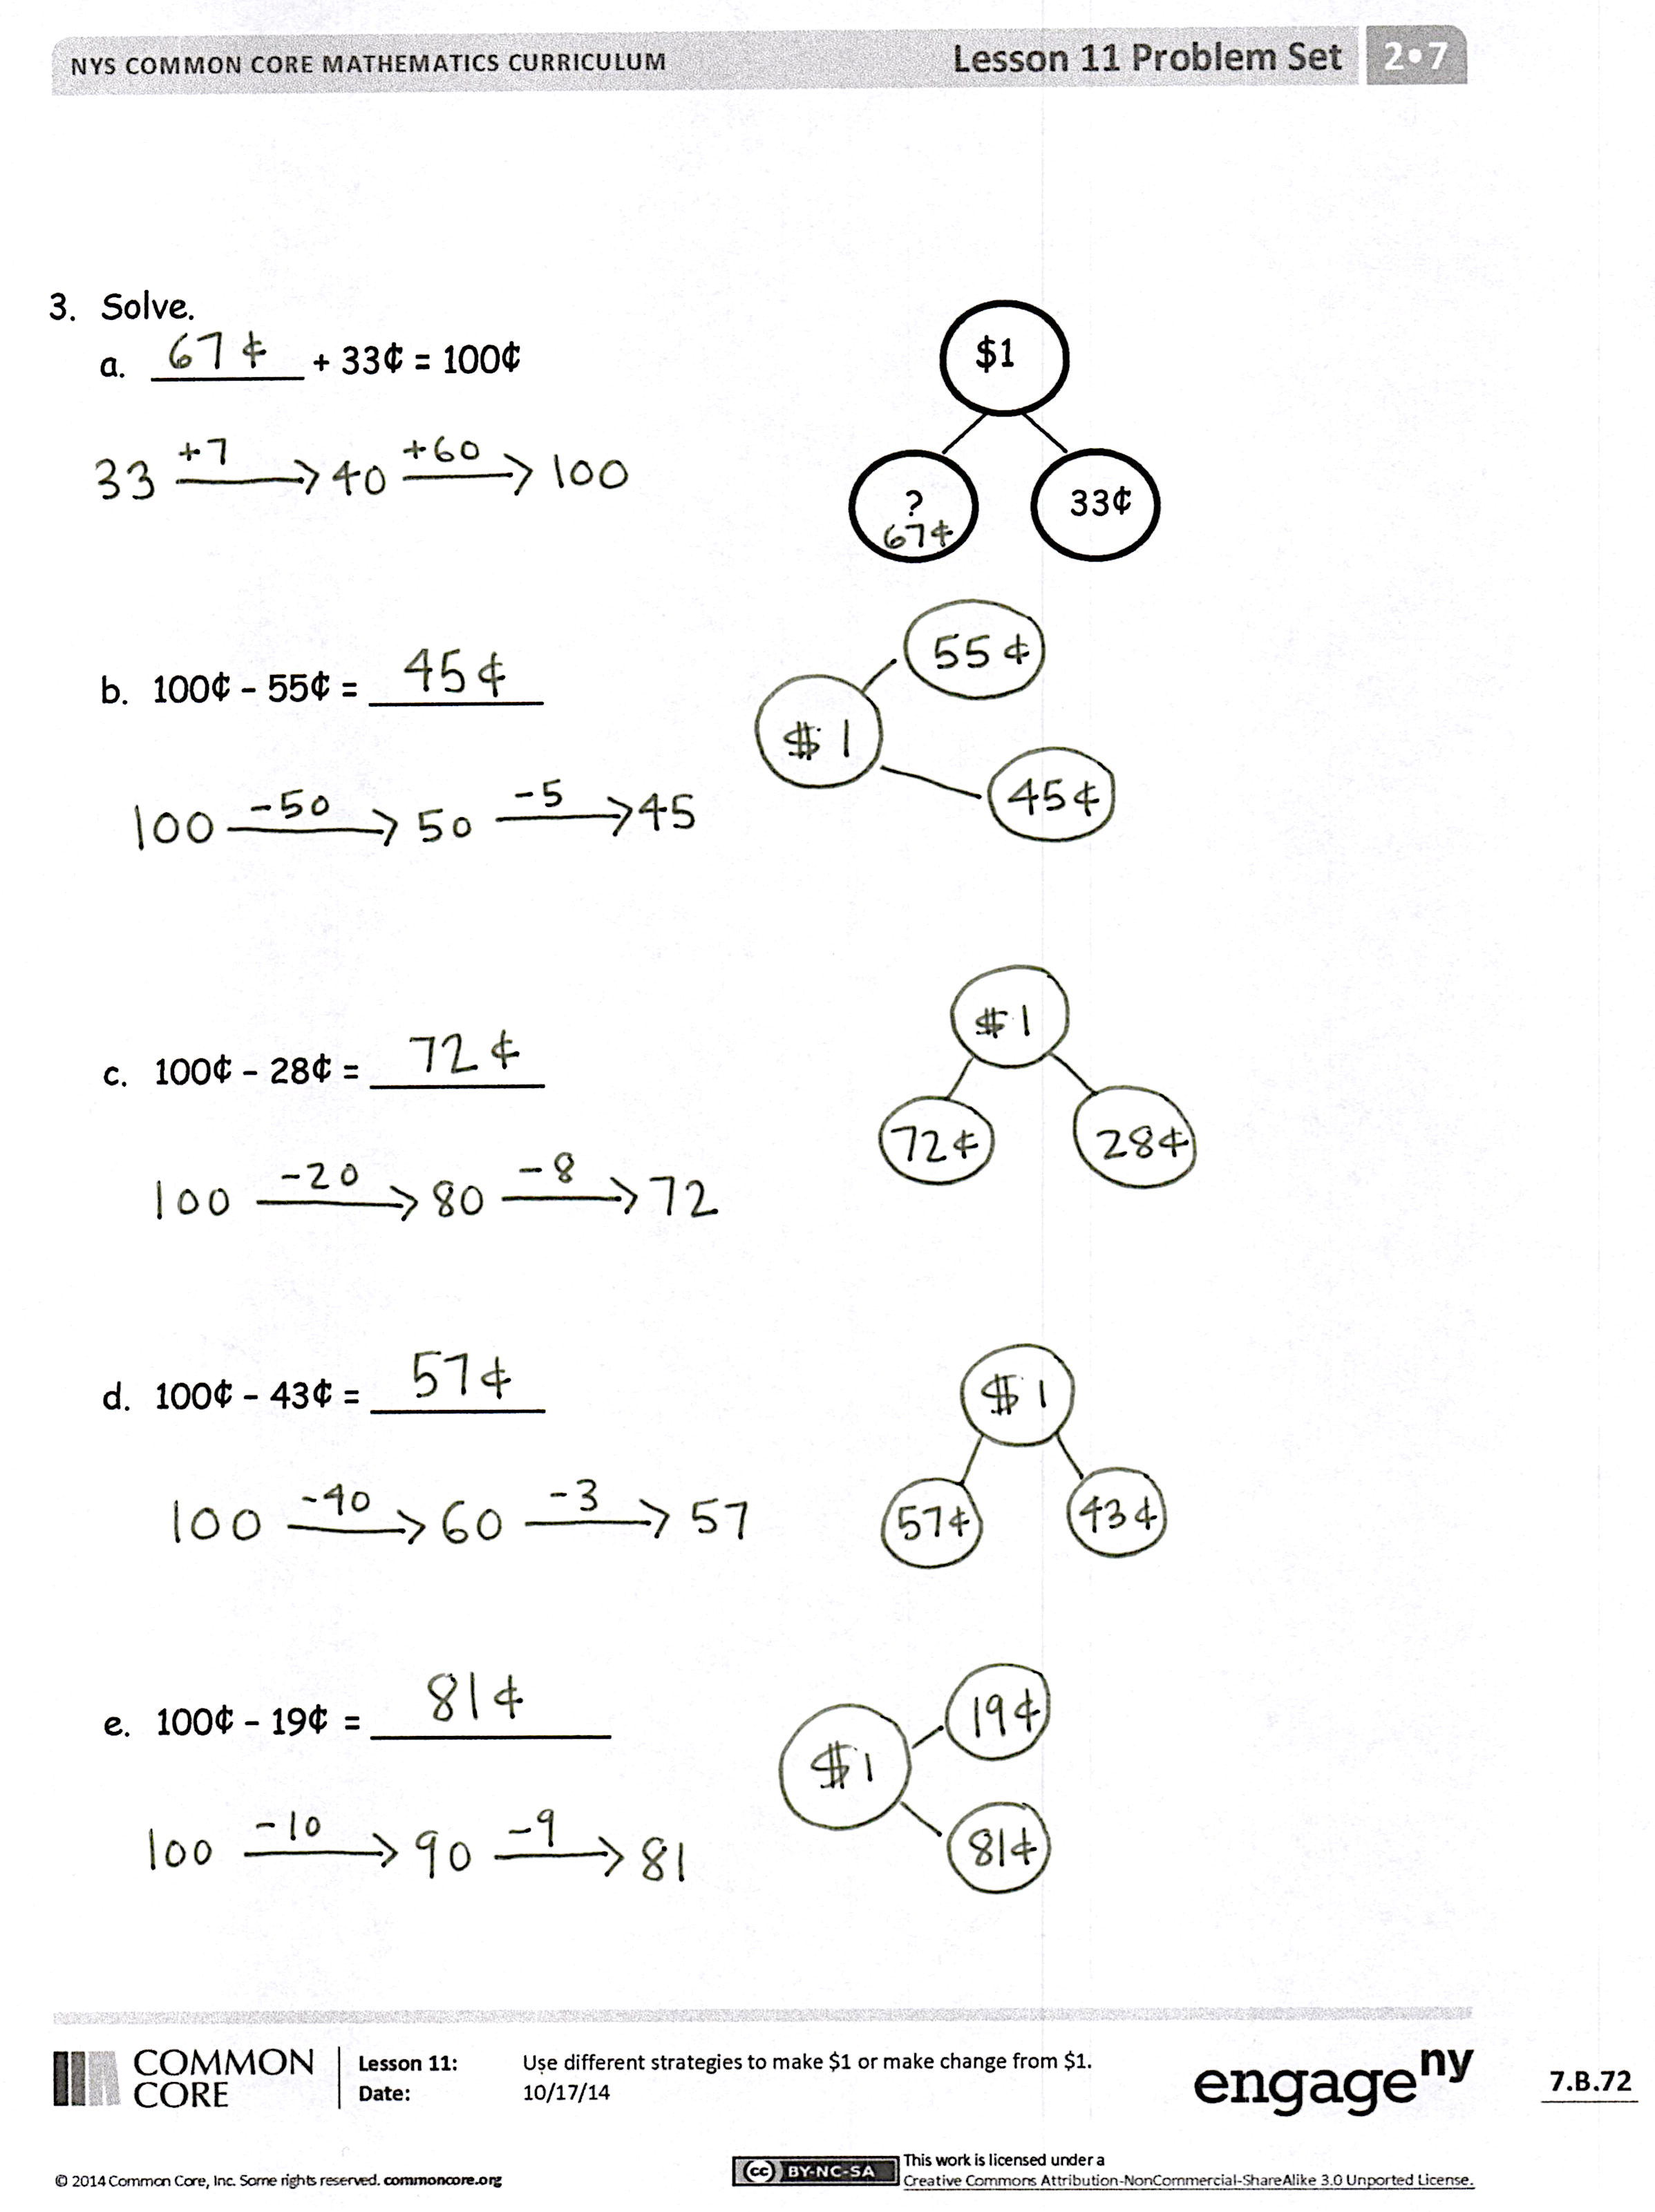 NYS COMMON CORE MATHEMATICS CURRICULUM Lesson 11 Problem Set 2•7
3. Solve.
a. 67¢ + 33¢ = 100¢
33 +7→ 40 +60→ 100
$1
? 33¢
67¢
b. 100¢ - 55¢ = 45¢
100 -50→ 50 -5→ 45
55¢
$1
45¢
c. 100¢ - 28¢ = 72¢
100 -20→ 80 -8→ 72
$1
72¢ 28¢
d. 100¢ - 43¢ = 57¢
100 -40→ 60 -3→ 57
$1
57¢ 43¢
e. 100¢ - 19¢ = 81¢
100 -10→ 90 -9→ 81
19¢
$1
81¢
COMMON CORE
Lesson 11: Use different strategies to make $1 or make change from $1.
Date: 10/17/14
engage ny
7.B.72
© 2014 Common Core, Inc. Some rights reserved. commoncore.org
cc BY-NC-SA
This work is licensed under a
Creative Commons Attribution-NonCommercial-ShareAlike 3.0 Unported License.